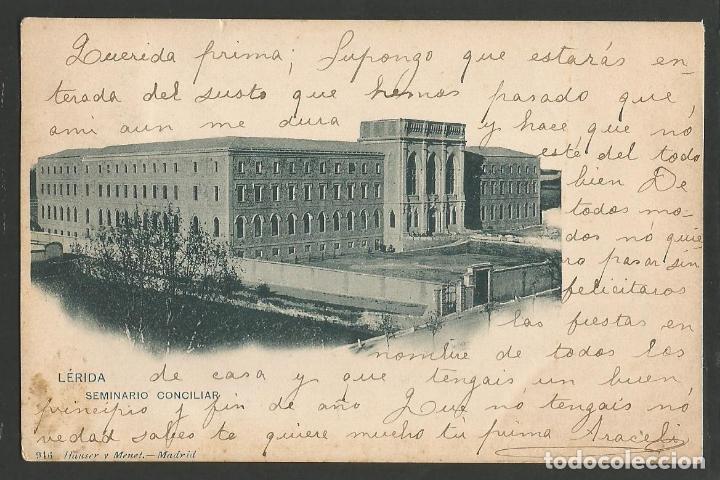 Querida prima; Supongo que estarás en=
terada del susto que hemos pasado que,
ami aun me dura y hace que nó
esté del todo
bien De
todos mo-
dos nó quie
ro pasar sin
felicitaros
las fiestas en
nombre de todos los
LÉRIDA
de casa y que tengais un buen
SEMINARIO CONCILIAR
principio y fin de año. Que no tengais nó
vedad sabes te quiere mucho tú prima Araceli
916 Hauser y Menet.—Madrid
todocoleccion.net